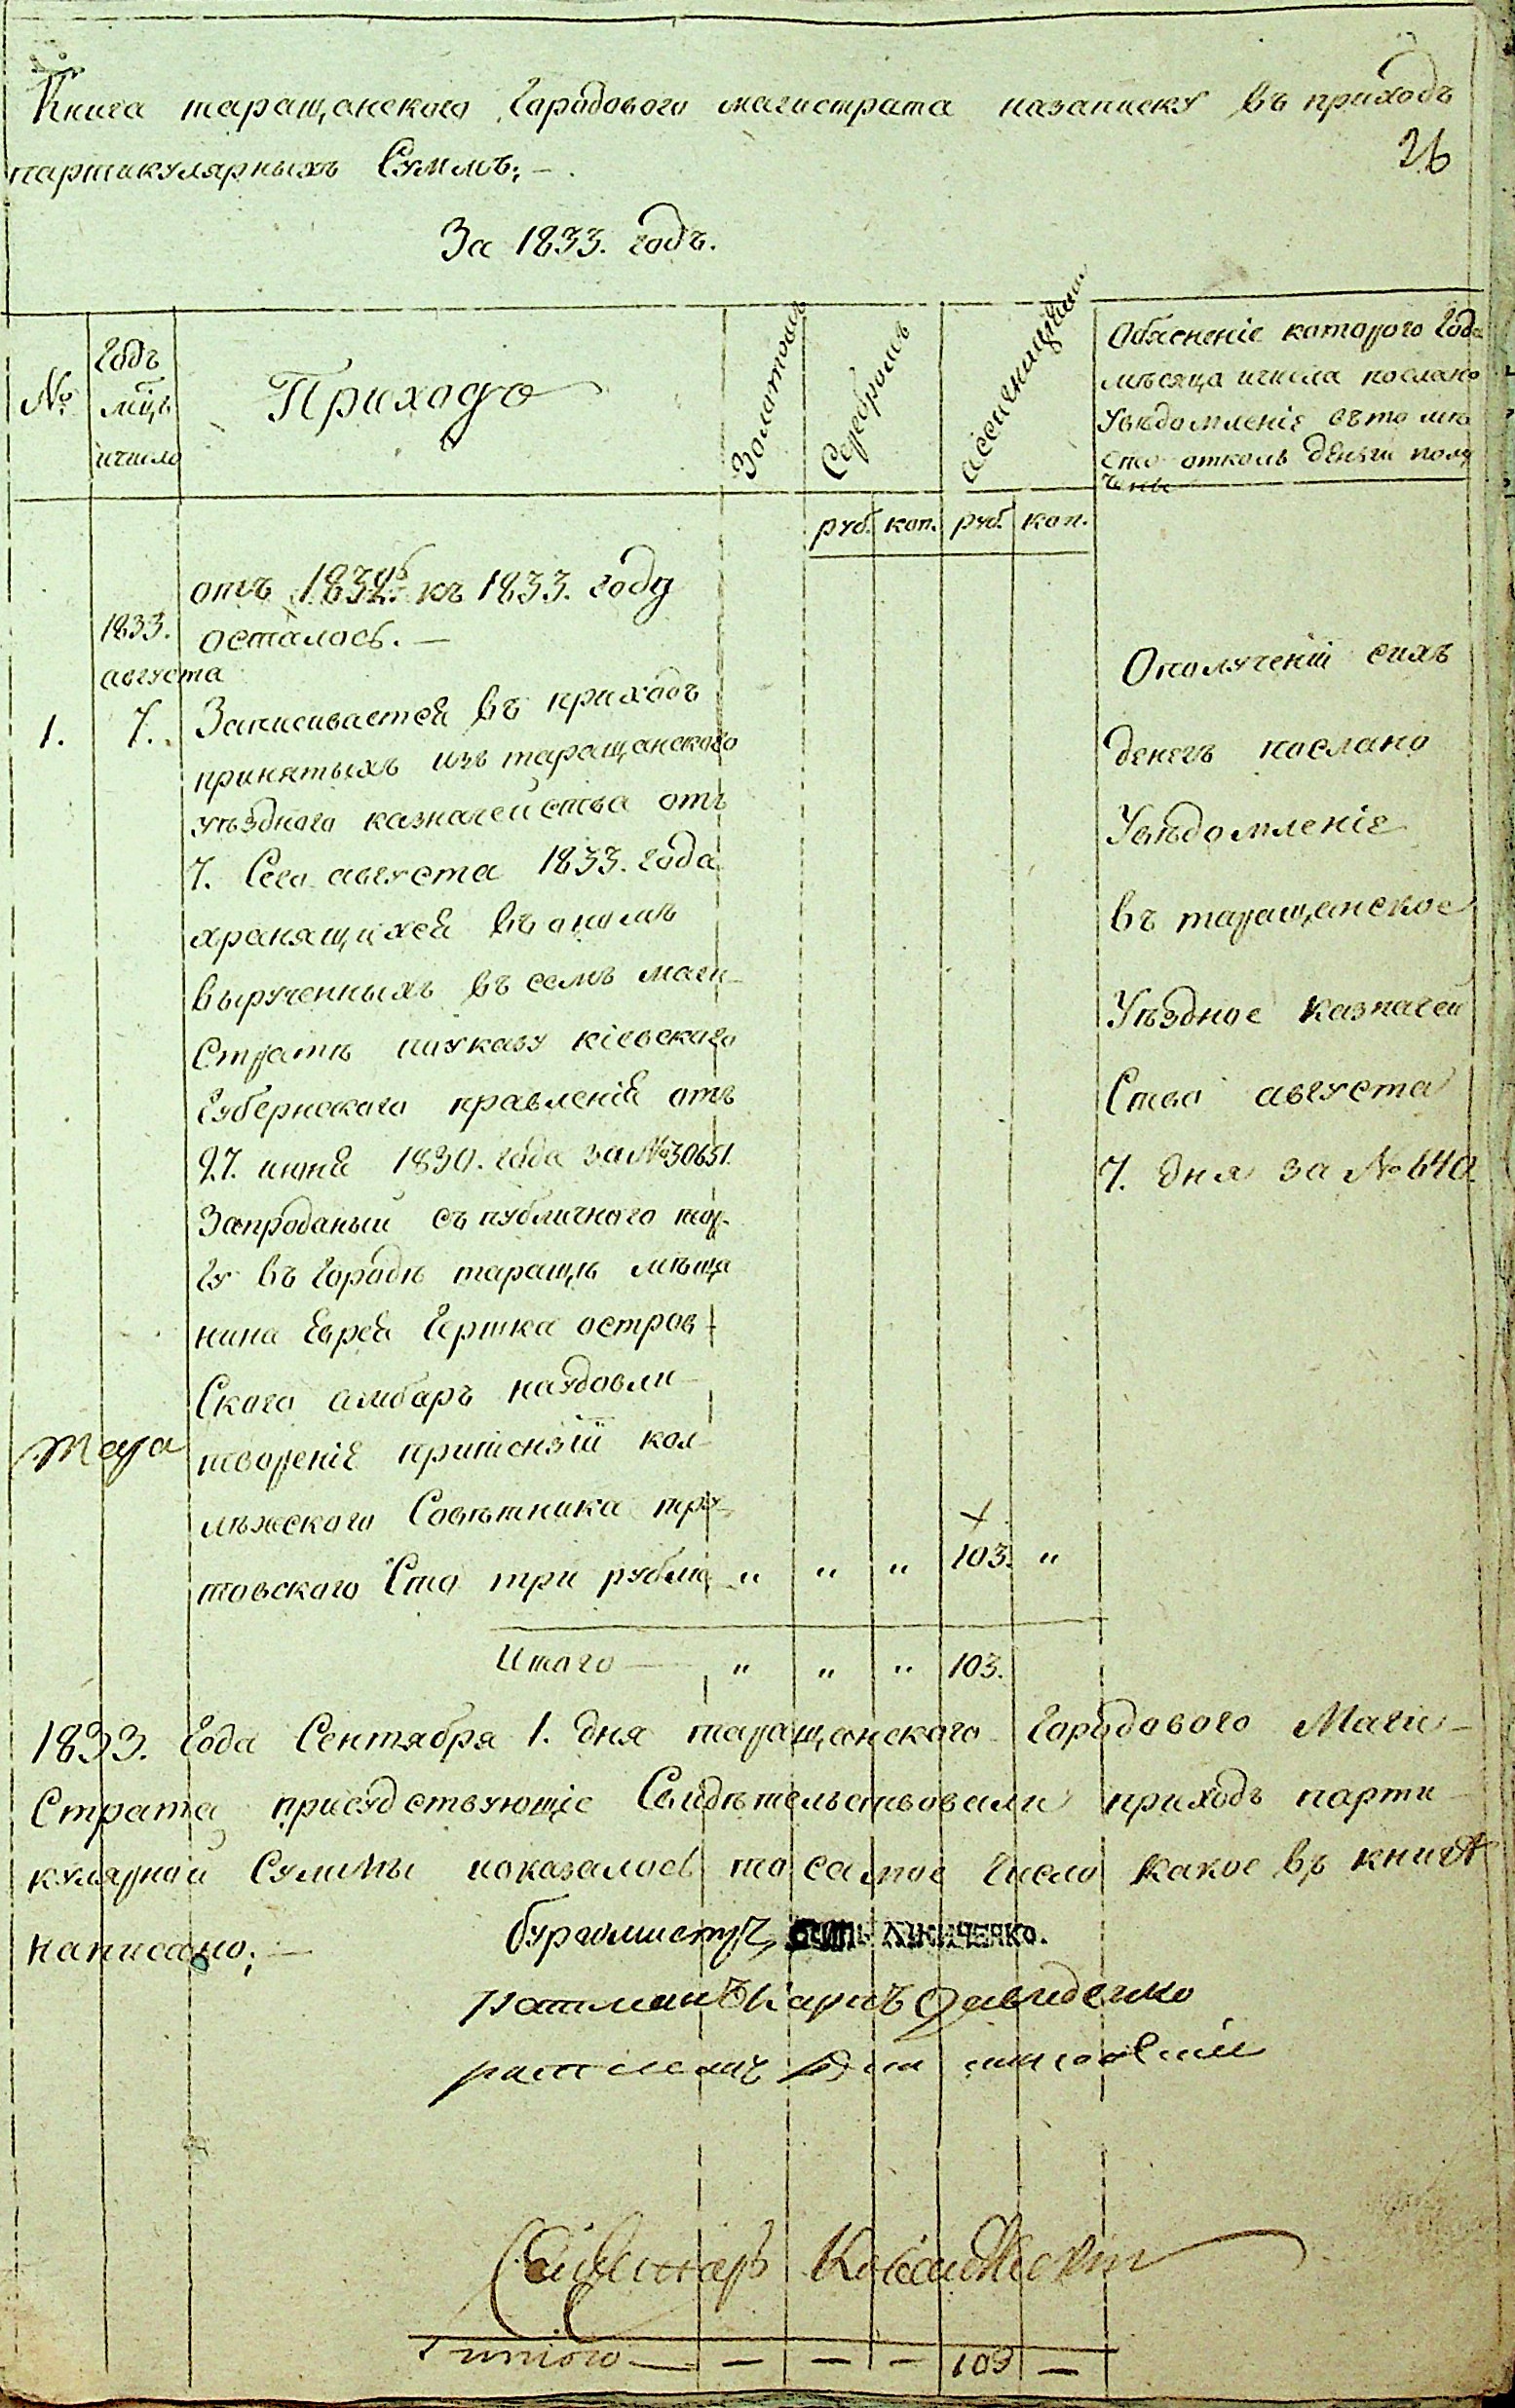 Книга таращанского Городового магистрата назаписку въ приходъ
26
партикулярныхъ Суммъ; —
За 1833. годъ.
№
Годъ
мцъ
ичисло
Приходъ
Золотомъ
Серебромъ
ассигнациями
Обясненіе которого Года
мѣсяца ичисла послано
Увѣдомленіе въто мѣ
сто отколь деньги полу
чены
руб. коп. руб. коп.
отъ 1832. къ 1833. году
осталось. —
1833.
августа
1. 7. Записивается въ приходъ
принятыхъ изъ таращанского
уѣздного казначейства отъ
7. Сего августа 1833. года
хранящихся въ ономъ
вырученныхъ въ семъ маги-
Стратѣ поуказу кіевского
Губернского правленія отъ
27. июня 1830. года за №30651.
Запроданый съ публичного тор-
гу въ Городѣ таращѣ мѣща
нина Еврея Гершка остров
Ского амбаръ наудовли-
твореніе притензіи кол-
лѣжского Совѣтника тру-
товского Сто три рубли " " " 103. "
Ополученіи сихъ
денегъ послано
Увѣдомленіе
въ таращанское
Уѣздное казначей
Ство августа
7. дня за №640.
Итого — " " " 103.
1833. Года Сентября 1. дня таращанского Городового Маги-
Страта присудствующіе Свидѣтельствовали приходъ парти-
кулярной Суммы показалось то самое Число какое въ книгѣ
написано; —
бургомистръ
Ратманъ Карпъ Давиденко
ратманъ
Секретарь
Итого — — — — 103 —